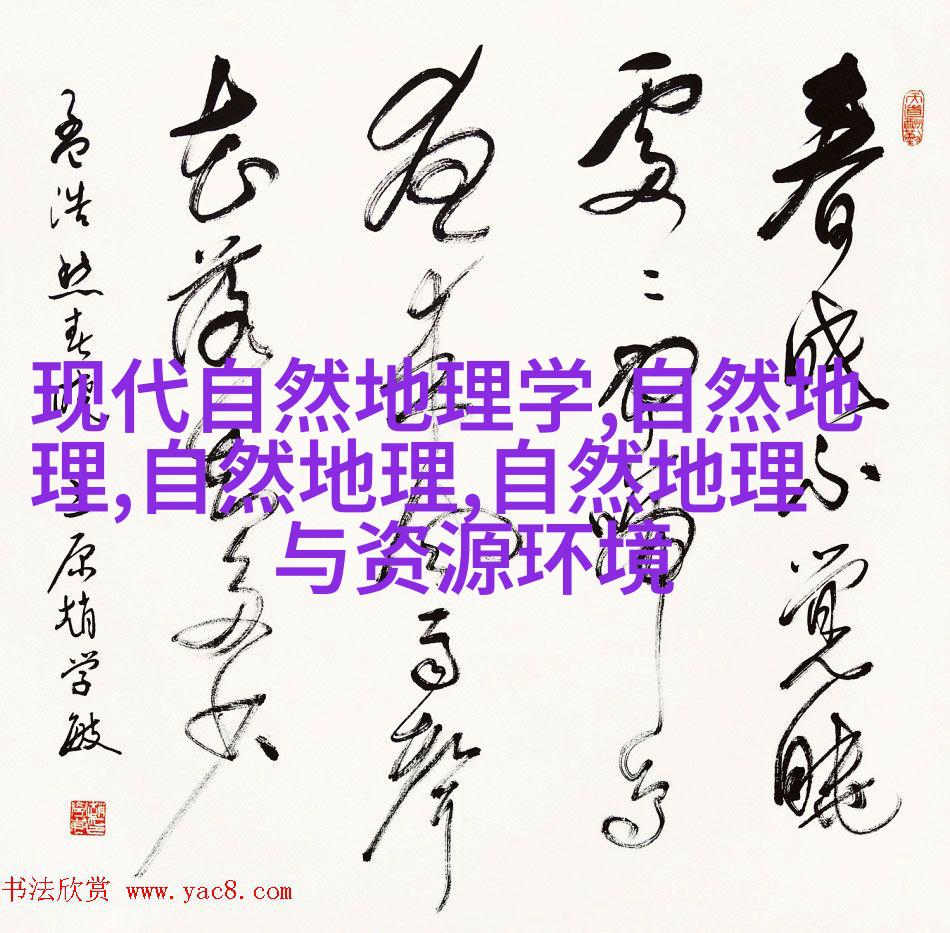 春晓不觉晓
处二闻啼鸟
夜来风雨声
花落知多少
孟浩然春晓 太原赵学敏
天道酬勤
现代自然地理学,自然地
理,自然地理,自然地理
与资源环境
书法欣赏 www.yac8.com